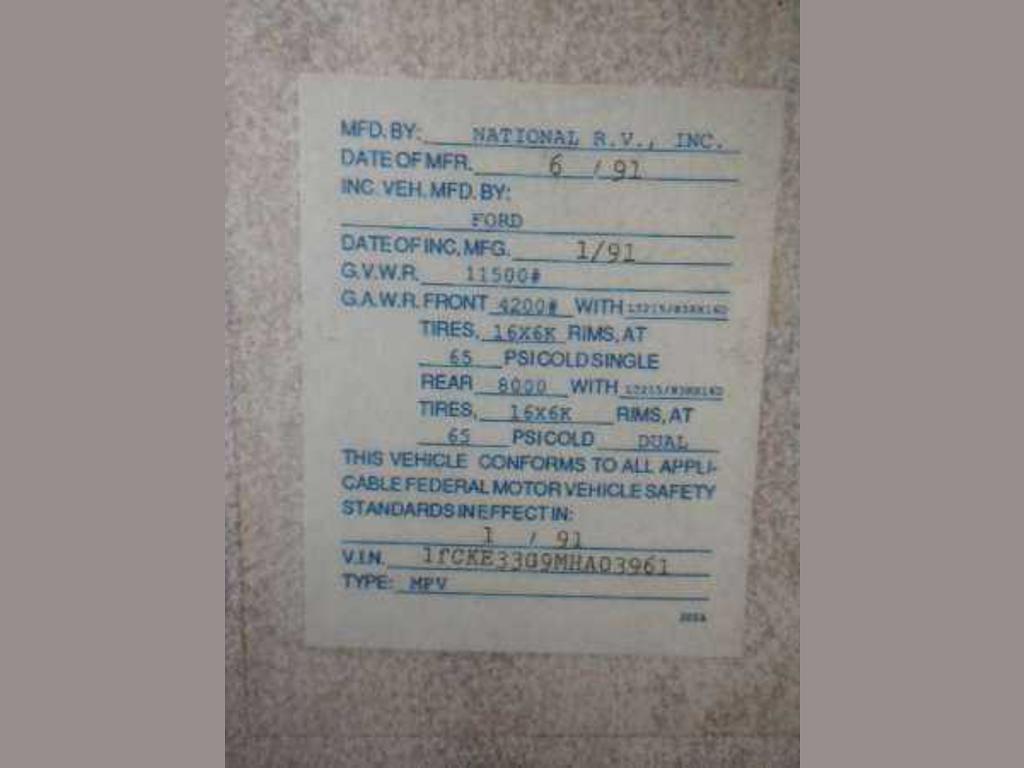 MFD. BY: NATIONAL R.V., INC.
DATE OF MFR. 6 / 91
INC. VEH. MFD. BY:
FORD
DATE OF INC. MFG. 1/91
G.V.W.R. 11500#
G.A.W.R. FRONT 4200# WITH
TIRES, 16X6K RIMS, AT
65 PSI COLD SINGLE
REAR 8000 WITH
TIRES, 16X6K RIMS, AT
65 PSI COLD DUAL
THIS VEHICLE CONFORMS TO ALL APPLI-
CABLE FEDERAL MOTOR VEHICLE SAFETY
STANDARDS IN EFFECT IN:
1 / 91
V.I.N. 1fCKE33G9MHA03961
TYPE: MPV